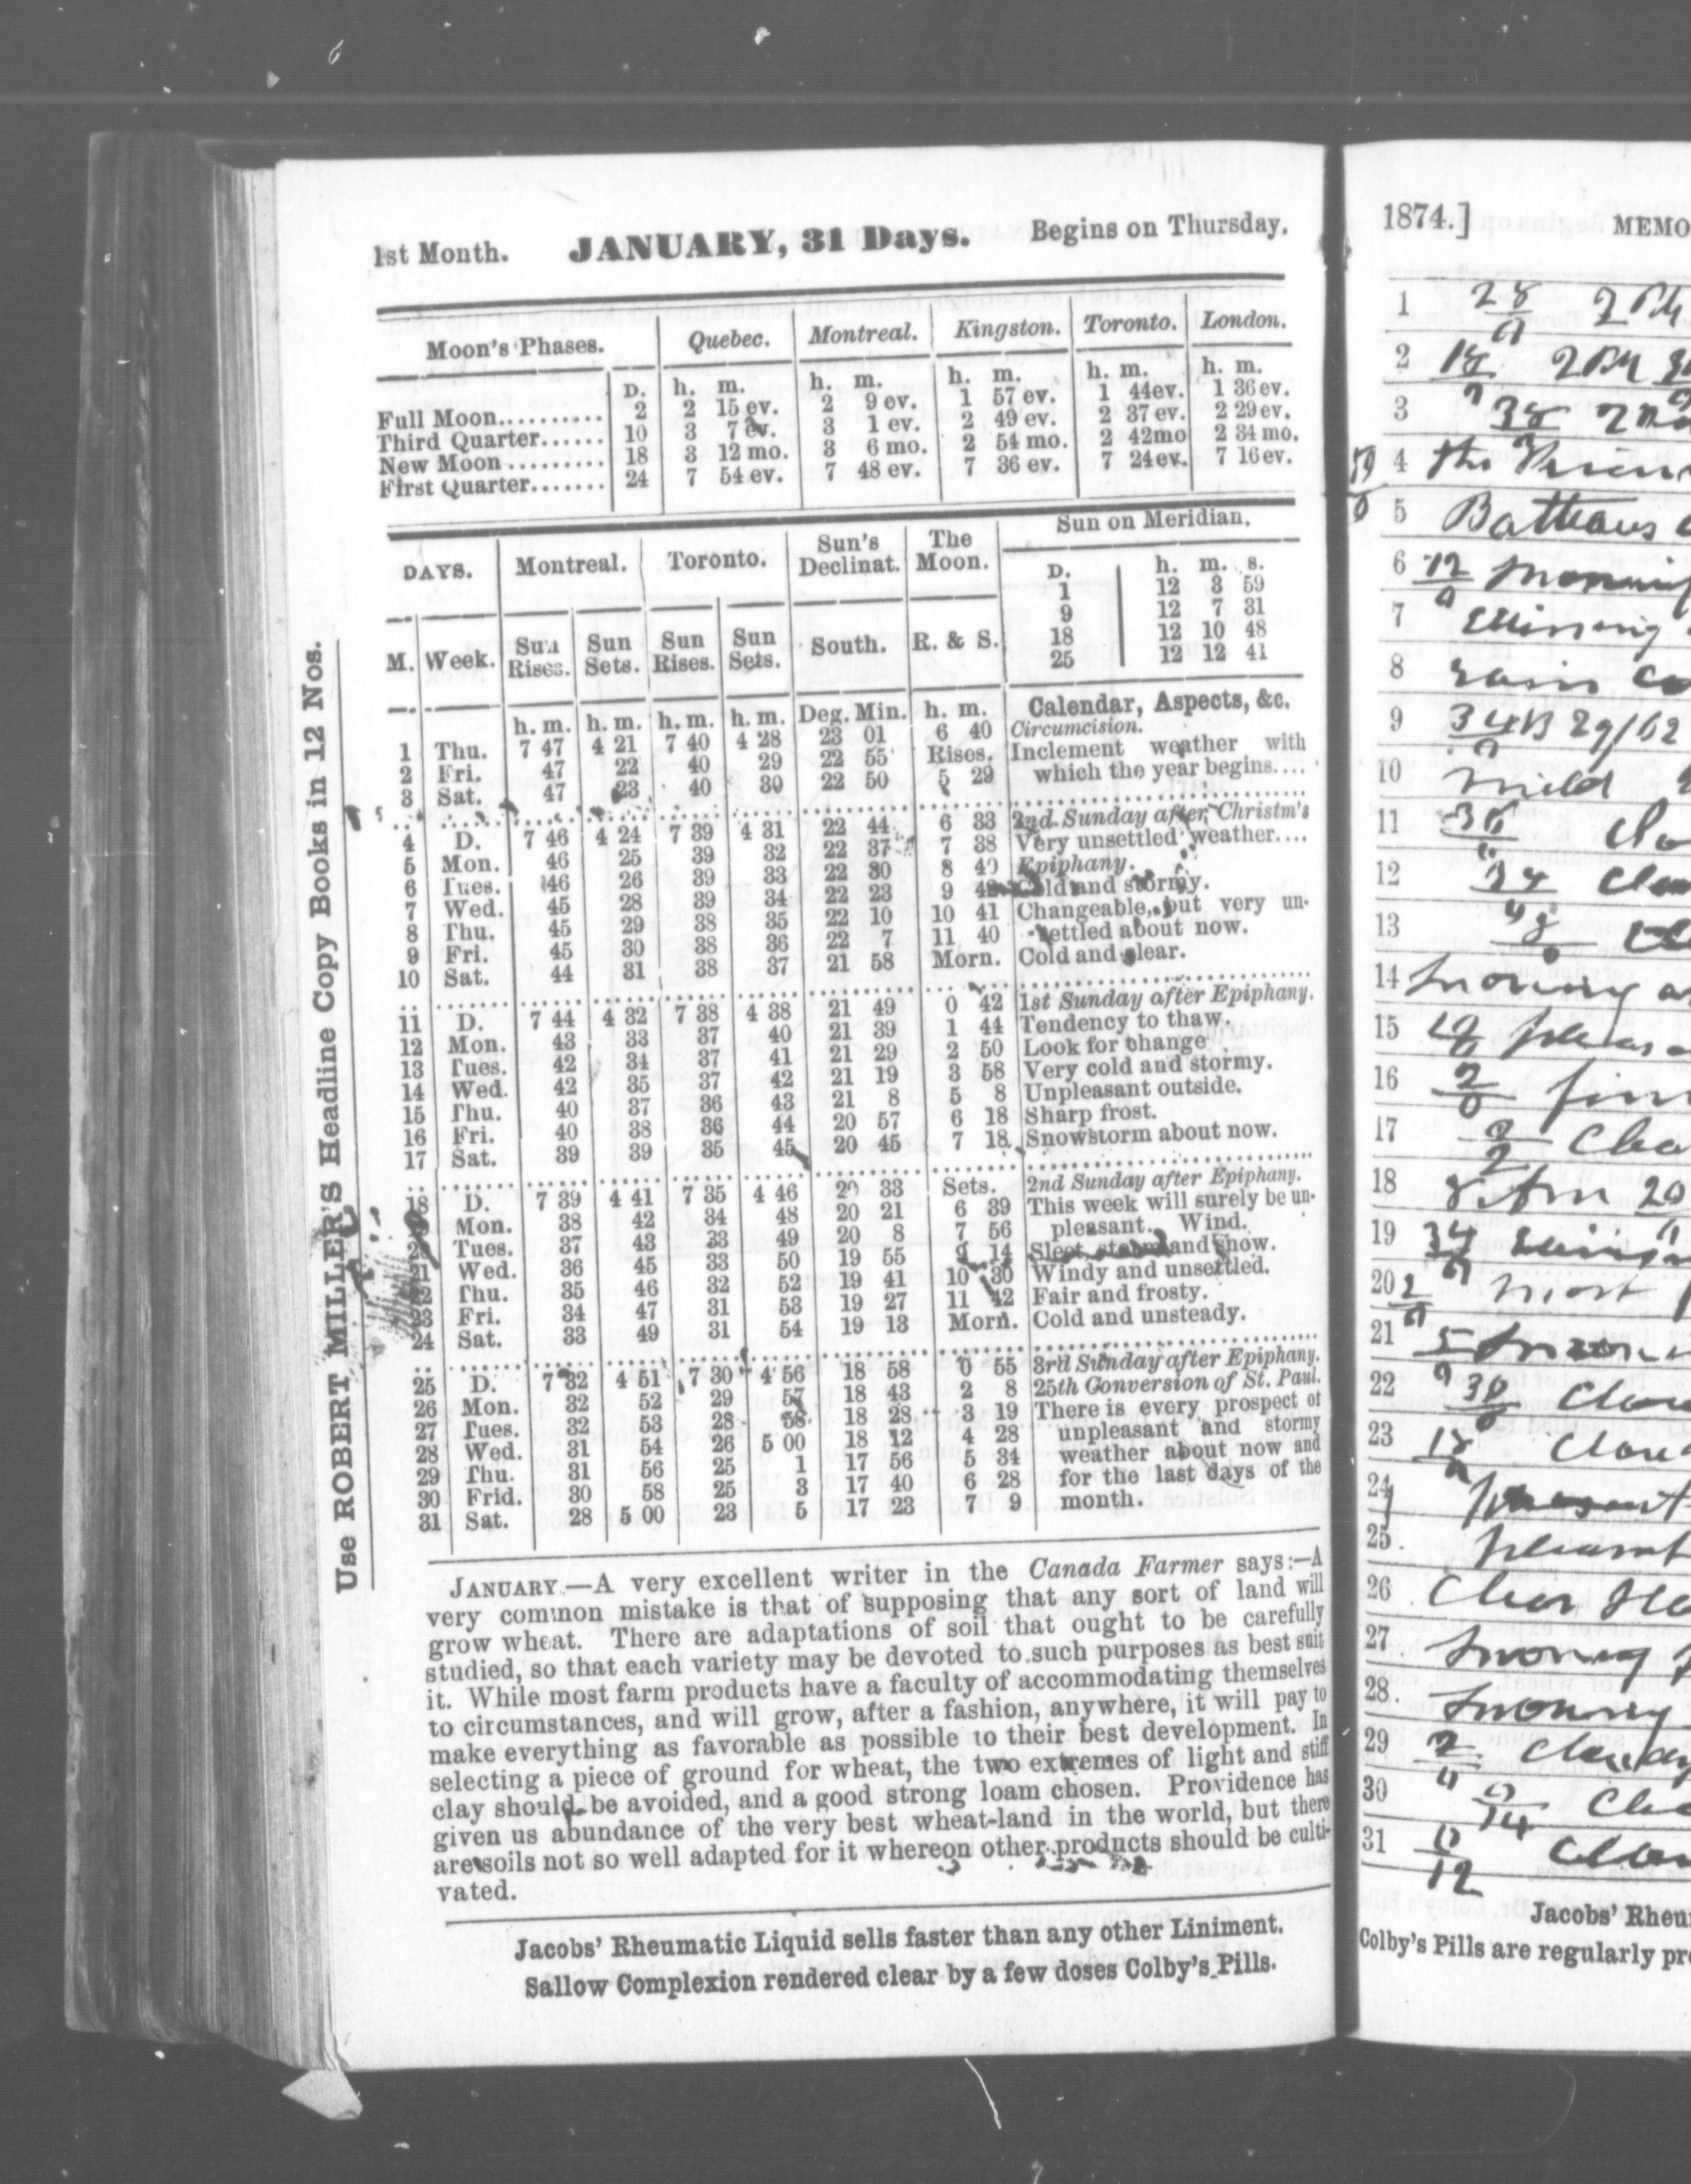 1st Month. JANUARY, 31 Days. Begins on Thursday.
Moon's Phases. Quebec. Montreal. Kingston. Toronto. London.
D. h. m. h. m. h. m. h. m. h. m.
Full Moon.......... 2 2 15 ev. 2 9 ev. 1 57 ev. 1 44ev. 1 36 ev.
Third Quarter...... 10 3 7 ev. 3 1 ev. 2 49 ev. 2 37 ev. 2 29 ev.
New Moon ......... 18 3 12 mo. 3 6 mo. 2 54 mo. 2 42mo 2 34 mo.
First Quarter....... 24 7 54 ev. 7 48 ev. 7 36 ev. 7 24ev. 7 16 ev.
DAYS. Montreal. Toronto. Sun's Declinat. The Moon. Sun on Meridian.
D. h. m. s.
1 12 3 59
9 12 7 31
18 12 10 48
25 12 12 41
M. Week. Sun Rises. Sun Sets. Sun Rises. Sun Sets. South. R. & S.
h. m. h. m. h. m. h. m. Deg. Min. h. m. Calendar, Aspects, &c.
1 Thu. 7 47 4 21 7 40 4 28 23 01 6 40 Circumcision.
2 Fri. 47 22 40 29 22 55 Rises. Inclement weather with
3 Sat. 47 23 40 30 22 50 5 29 which the year begins....
4 D. 7 46 4 24 7 39 4 31 22 44 6 33 2nd Sunday after Christm's
5 Mon. 46 25 39 32 22 37 7 38 Very unsettled weather....
6 Tues. 46 26 39 33 22 30 8 40 Epiphany.
7 Wed. 45 28 39 34 22 23 9 Cold and stormy.
8 Thu. 45 29 38 35 22 10 10 41 Changeable, but very un-
9 Fri. 45 30 38 36 22 7 11 40 settled about now.
10 Sat. 44 31 38 37 21 58 Morn. Cold and clear.
11 D. 7 44 4 32 7 38 4 38 21 49 0 42 1st Sunday after Epiphany.
12 Mon. 43 33 37 40 21 39 1 44 Tendency to thaw.
13 Tues. 42 34 37 41 21 29 2 50 Look for change
14 Wed. 42 35 37 42 21 19 3 58 Very cold and stormy.
15 Thu. 40 37 36 43 21 8 5 8 Unpleasant outside.
16 Fri. 40 38 36 44 20 57 6 18 Sharp frost.
17 Sat. 39 39 35 45 20 45 7 18 Snowstorm about now.
18 D. 7 39 4 41 7 35 4 46 20 33 Sets. 2nd Sunday after Epiphany.
19 Mon. 38 42 34 48 20 21 6 39 This week will surely be un-
20 Tues. 37 43 33 49 20 8 7 56 pleasant. Wind.
21 Wed. 36 45 33 50 19 55 9 14 Sleet, storm and snow.
22 Thu. 35 46 32 52 19 41 10 30 Windy and unsettled.
23 Fri. 34 47 31 53 19 27 11 42 Fair and frosty.
24 Sat. 33 49 31 54 19 13 Morn. Cold and unsteady.
25 D. 7 32 4 51 7 30 4 56 18 58 0 55 3rd Sunday after Epiphany.
26 Mon. 32 52 29 57 18 43 2 8 25th Conversion of St. Paul.
27 Tues. 32 53 28 58 18 28 3 19 There is every prospect of
28 Wed. 31 54 26 5 00 18 12 4 28 unpleasant and stormy
29 Thu. 31 56 25 1 17 56 5 34 weather about now and
30 Frid. 30 58 25 3 17 40 6 28 for the last days of the
31 Sat. 28 5 00 23 5 17 23 7 9 month.
JANUARY.—A very excellent writer in the Canada Farmer says:—A
very common mistake is that of supposing that any sort of land will
grow wheat. There are adaptations of soil that ought to be carefully
studied, so that each variety may be devoted to such purposes as best suit
it. While most farm products have a faculty of accommodating themselves
to circumstances, and will grow, after a fashion, anywhere, it will pay to
make everything as favorable as possible to their best development. In
selecting a piece of ground for wheat, the two extremes of light and stiff
clay should be avoided, and a good strong loam chosen. Providence has
given us abundance of the very best wheat-land in the world, but there
are soils not so well adapted for it whereon other products should be culti-
vated.
Jacobs' Rheumatic Liquid sells faster than any other Liniment.
Sallow Complexion rendered clear by a few doses Colby's Pills.
Use ROBERT MILLER'S Headline Copy Books in 12 Nos.
1874.] MEMO
1 28
2
3 38
4 the
5
6 12 morning
7
8 rain
9
10 mild
11
12 34
13
14 Snowing
15
16
17
18
19 34
20 most
21
22
23 18
24
25. pleasant
26 Clear
27. Snowing
28. Snowing
29 2 Cloudy
30 0 14
31 0 12
Jacobs' Rheu
Colby's Pills are regularly pr